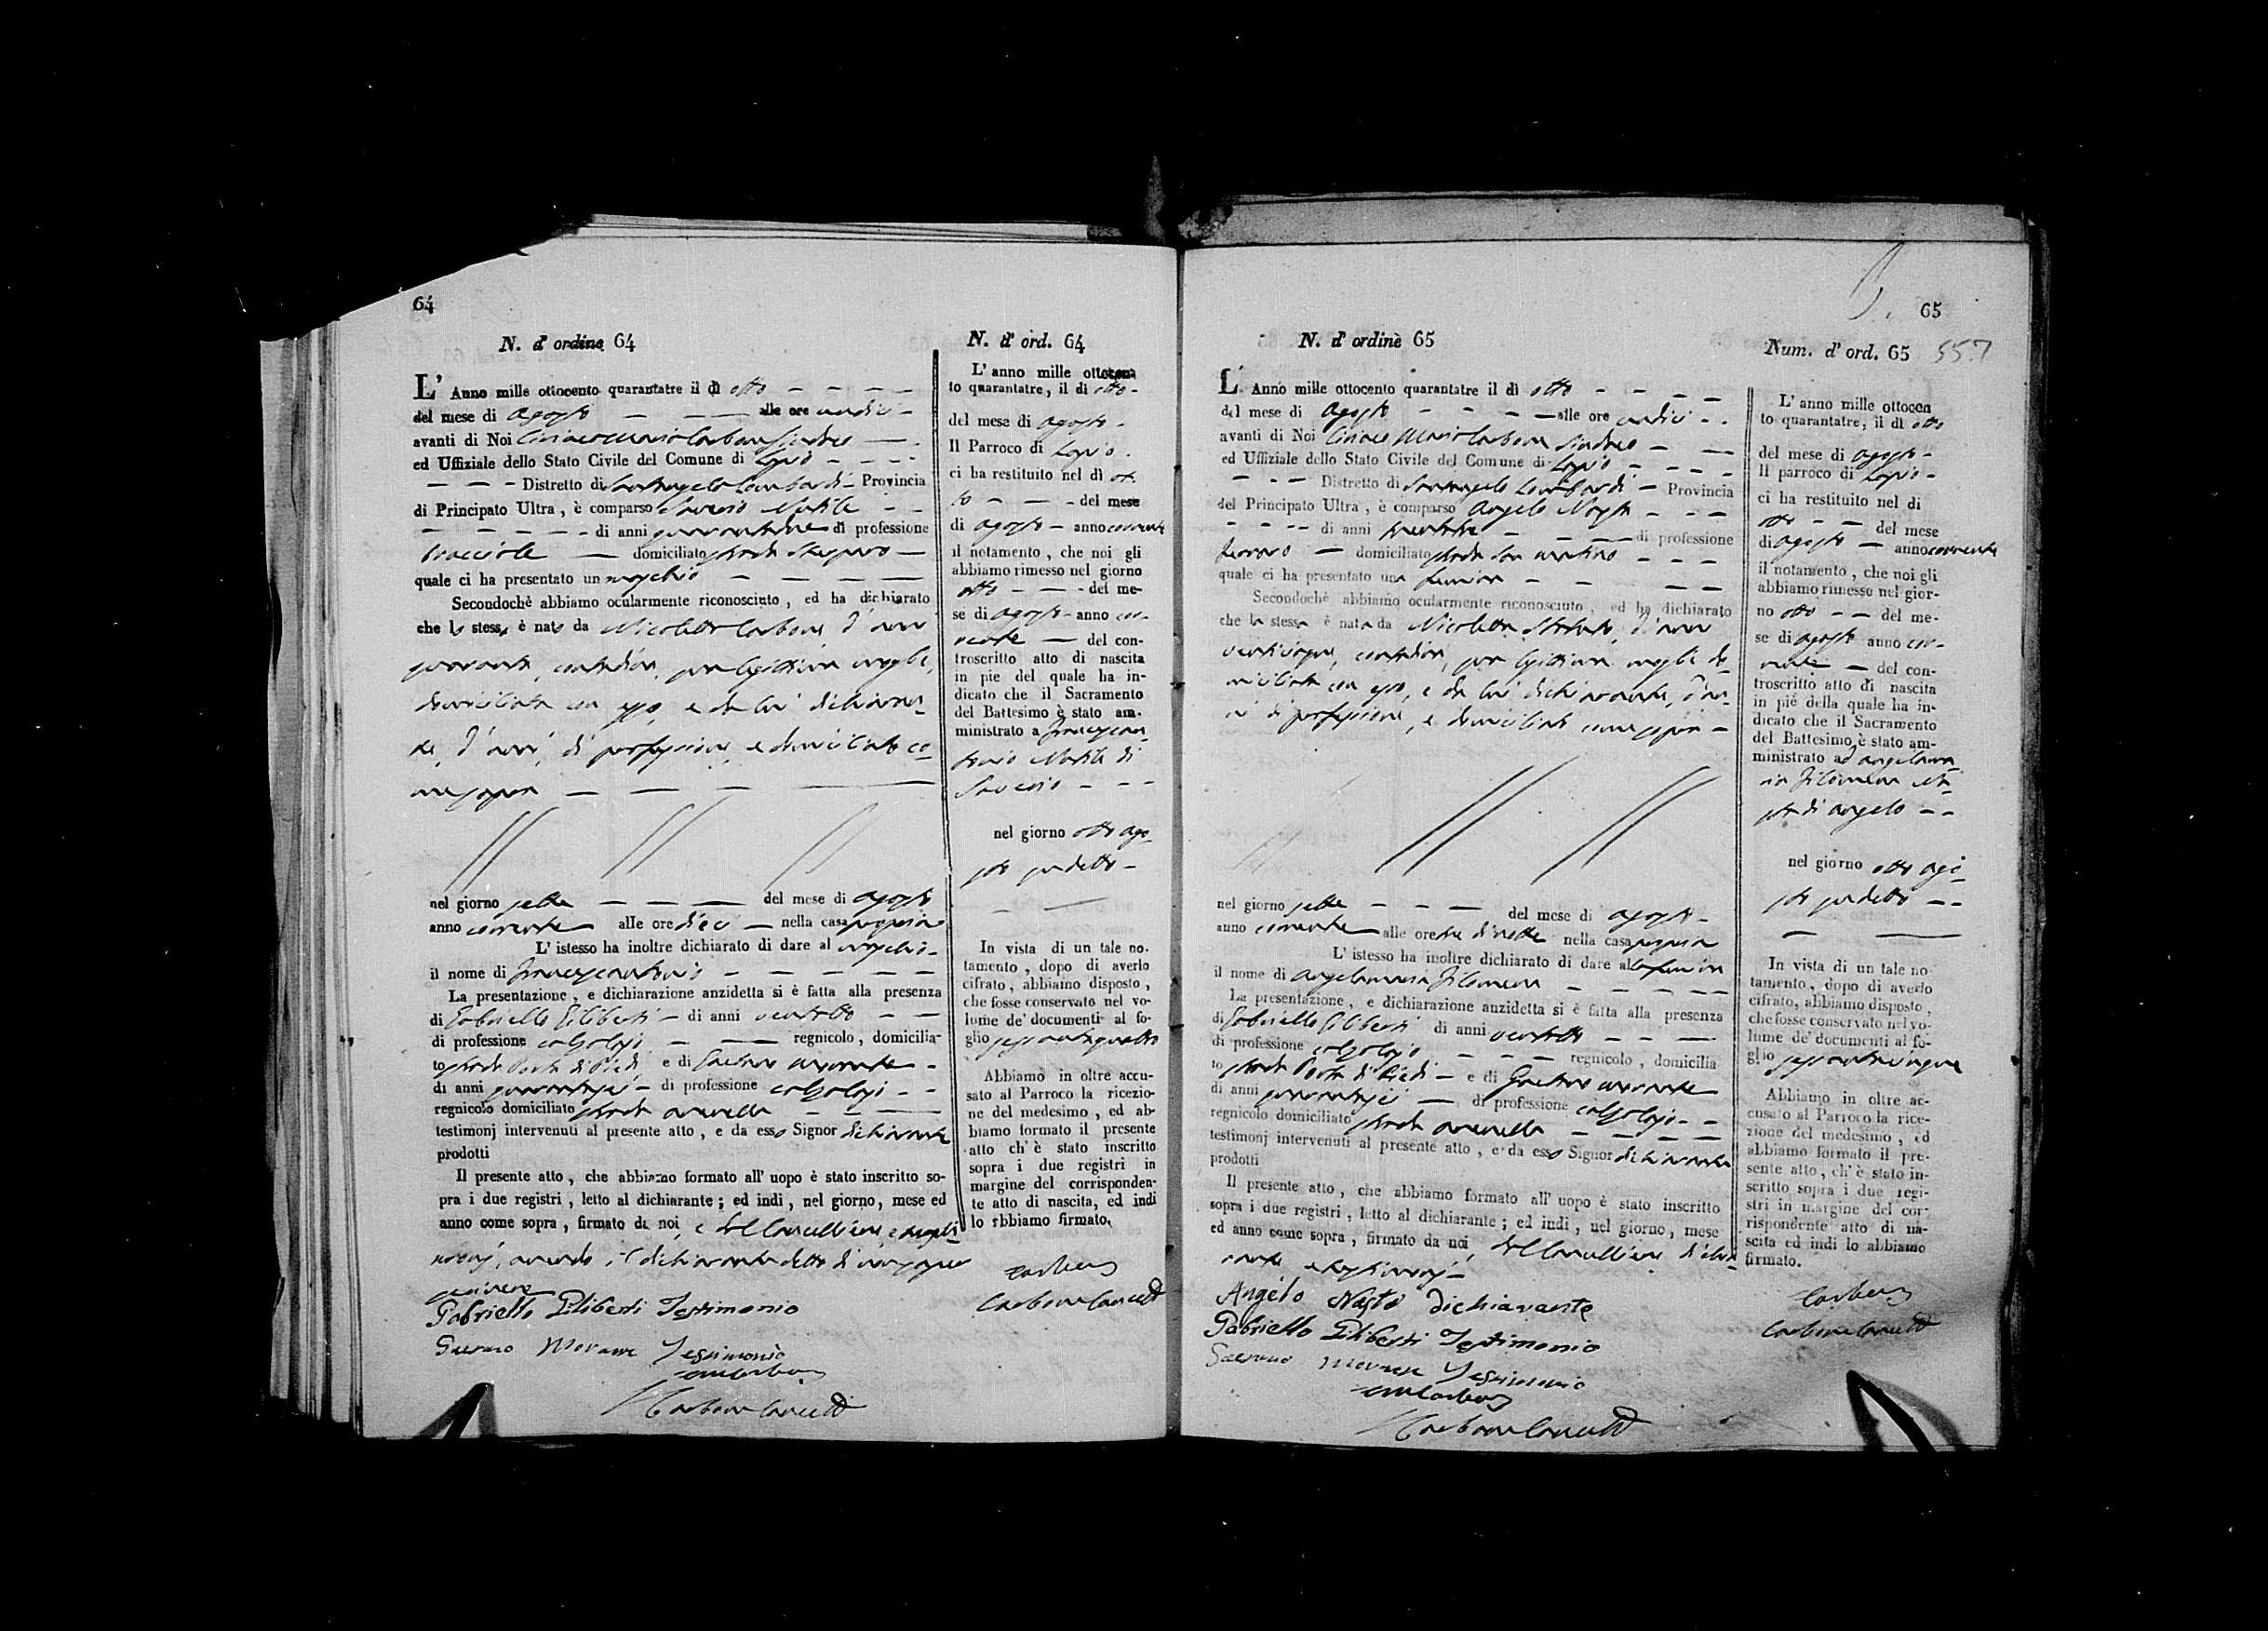 64
N. d' ordine 64
L' Anno mille ottocento quarantatre il dì otto
del mese di Agosto alle ore undici
avanti di Noi Ciriaco Maria Carbone Sindaco
ed Uffiziale dello Stato Civile del Comune di Lapio
Distretto di Santangelo Lombardi Provincia
di Principato Ultra, è comparso Saverio
di anni di professione
bracciale domiciliato strada
quale ci ha presentato un maschio
Secondochè abbiamo ocularmente riconosciuto, ed ha dichiarato
che lo stesso è nato da Nicoletta Carbone d'anni
quaranta, contadina, sua legittima moglie,
domiciliata con esso, e da lui dichiaran-
te, d'anni, di professione, e domiciliato co-
me sopra
nel giorno sette del mese di Agosto
anno corrente alle ore dieci nella casa propria
L' istesso ha inoltre dichiarato di dare al maschio
il nome di Francescantonio
La presentazione, e dichiarazione anzidetta si è fatta alla presenza
di Gabriello Giliberti di anni ventotto
di professione calzolajo regnicolo, domicilia-
to strada Porta di Piedi e di Gaetano Morante
di anni quarantasei di professione calzolajo
regnicolo domiciliato strada
testimonj intervenuti al presente atto, e da esso Signor dichiarante
prodotti
Il presente atto, che abbiamo formato all' uopo è stato inscritto so-
pra i due registri, letto al dichiarante; ed indi, nel giorno, mese ed
anno come sopra, firmato da noi, e dal Cancelliere, e testi-
monj, avendo il dichiarante detto di non sapere
scrivere
Gabriello Giliberti Testimonio
Gaetano Morante Testimonio
Carbone
Carbone Cancell
N. d' ord. 64
L' anno mille ottocen
to quarantatre, il dì otto
del mese di Agosto
Il Parroco di Lapio
ci ha restituito nel dì ot-
to del mese
di Agosto anno corrente
il notamento, che noi gli
abbiamo rimesso nel giorno
otto del me-
se di Agosto anno cor-
rente del con-
troscritto atto di nascita
in piè del quale ha in-
dicato che il Sacramento
del Battesimo è stato am-
ministrato a Francescan-
tonio di
Saverio
nel giorno otto Ago-
sto suddetto
In vista di un tale no-
tamento, dopo di averlo
cifrato, abbiamo disposto,
che fosse conservato nel vo-
lume de' documenti al fo-
glio sessantaquattro
Abbiamo in oltre accu-
sato al Parroco la ricezio-
ne del medesimo, ed ab-
biamo formato il presente
atto ch' è stato inscritto
sopra i due registri in
margine del corrisponden-
te atto di nascita, ed indi
lo abbiamo firmato.
Carbone
Carbone Cancell
65
N. d' ordine 65
L' Anno mille ottocento quarantatre il dì otto
del mese di Agosto alle ore undici
avanti di Noi Ciriaco Maria Carbone Sindaco
ed Uffiziale dello Stato Civile del Comune di Lapio
Distretto di Santangelo Lombardi Provincia
del Principato Ultra, è comparso Angelo Nasta
di anni trentatre di professione
ferraro domiciliato strada San Martino
quale ci ha presentato una femina
Secondochè abbiamo ocularmente riconosciuto, ed ha dichiarato
che la stessa è nata da Nicoletta d'anni
venticinque, contadina, sua legittima moglie do-
miciliata con esso, e da lui dichiarante, d'an-
ni di professione, e domiciliato come sopra
nel giorno sette del mese di Agosto
anno corrente alle ore tre di notte nella casa propria
L' istesso ha inoltre dichiarato di dare alla femina
il nome di Angelamaria Filomena
La presentazione, e dichiarazione anzidetta si è fatta alla presenza
di Gabriello Giliberti di anni ventotto
di professione calzolajo regnicolo, domicilia-
to strada Porta di Piedi e di Gaetano Morante
di anni quarantasei di professione calzolajo
regnicolo domiciliato strada
testimonj intervenuti al presente atto, e da esso Signor dichiarante
prodotti
Il presente atto, che abbiamo formato all' uopo è stato inscritto
sopra i due registri, letto al dichiarante; ed indi, nel giorno, mese
ed anno come sopra, firmato da noi, dal Cancelliere dichia-
rante e testimonj
Angelo Nasta dichiarante
Gabriello Giliberti Testimonio
Gaetano Morante Testimonio
Carbone
Carbone Cancell
Num. d' ord. 65 557
L' anno mille ottocen
to quarantatre, il dì otto
del mese di Agosto
Il parroco di Lapio
ci ha restituito nel di
otto del mese
di Agosto anno corrente
il notamento, che noi gli
abbiamo rimesso nel gior-
no otto del me-
se di Agosto anno cor-
rente del con-
troscritto atto di nascita
in piè della quale ha in-
dicato che il Sacramento
del Battesimo è stato am-
ministrato ad Angelama-
ria Filomena Na-
sta di Angelo
nel giorno otto Ago-
sto suddetto
In vista di un tale no-
tamento, dopo di averlo
cifrato, abbiamo disposto,
che fosse conservato nel vo-
lume de' documenti al fo-
glio sessantacinque
Abbiamo in oltre ac-
cusato al Parroco la rice-
zione del medesimo, ed
abbiamo formato il pre-
sente atto, ch' è stato in-
scritto sopra i due regi-
stri in margine del cor-
rispondente atto di na-
scita ed indi lo abbiamo
firmato.
Carbone
Carbone Cancell